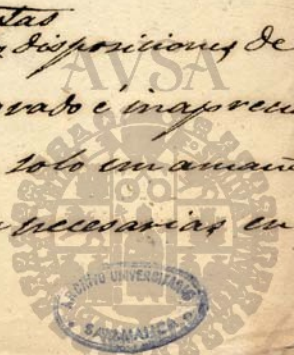 tas
disposiciones de
AVSA
rado é inapreci
solo un amañ
necesarias en
ARCHIVO UNIVERSITARIO
SALAMANCA